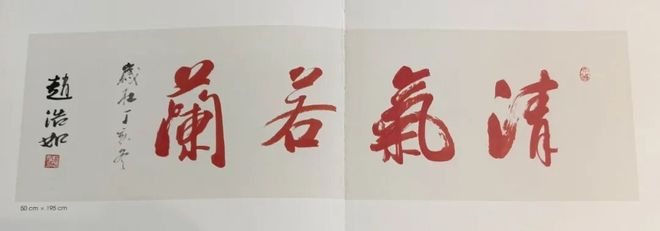 清氣若蘭
歲在丁亥冬
趙浩如
50 cm × 195 cm